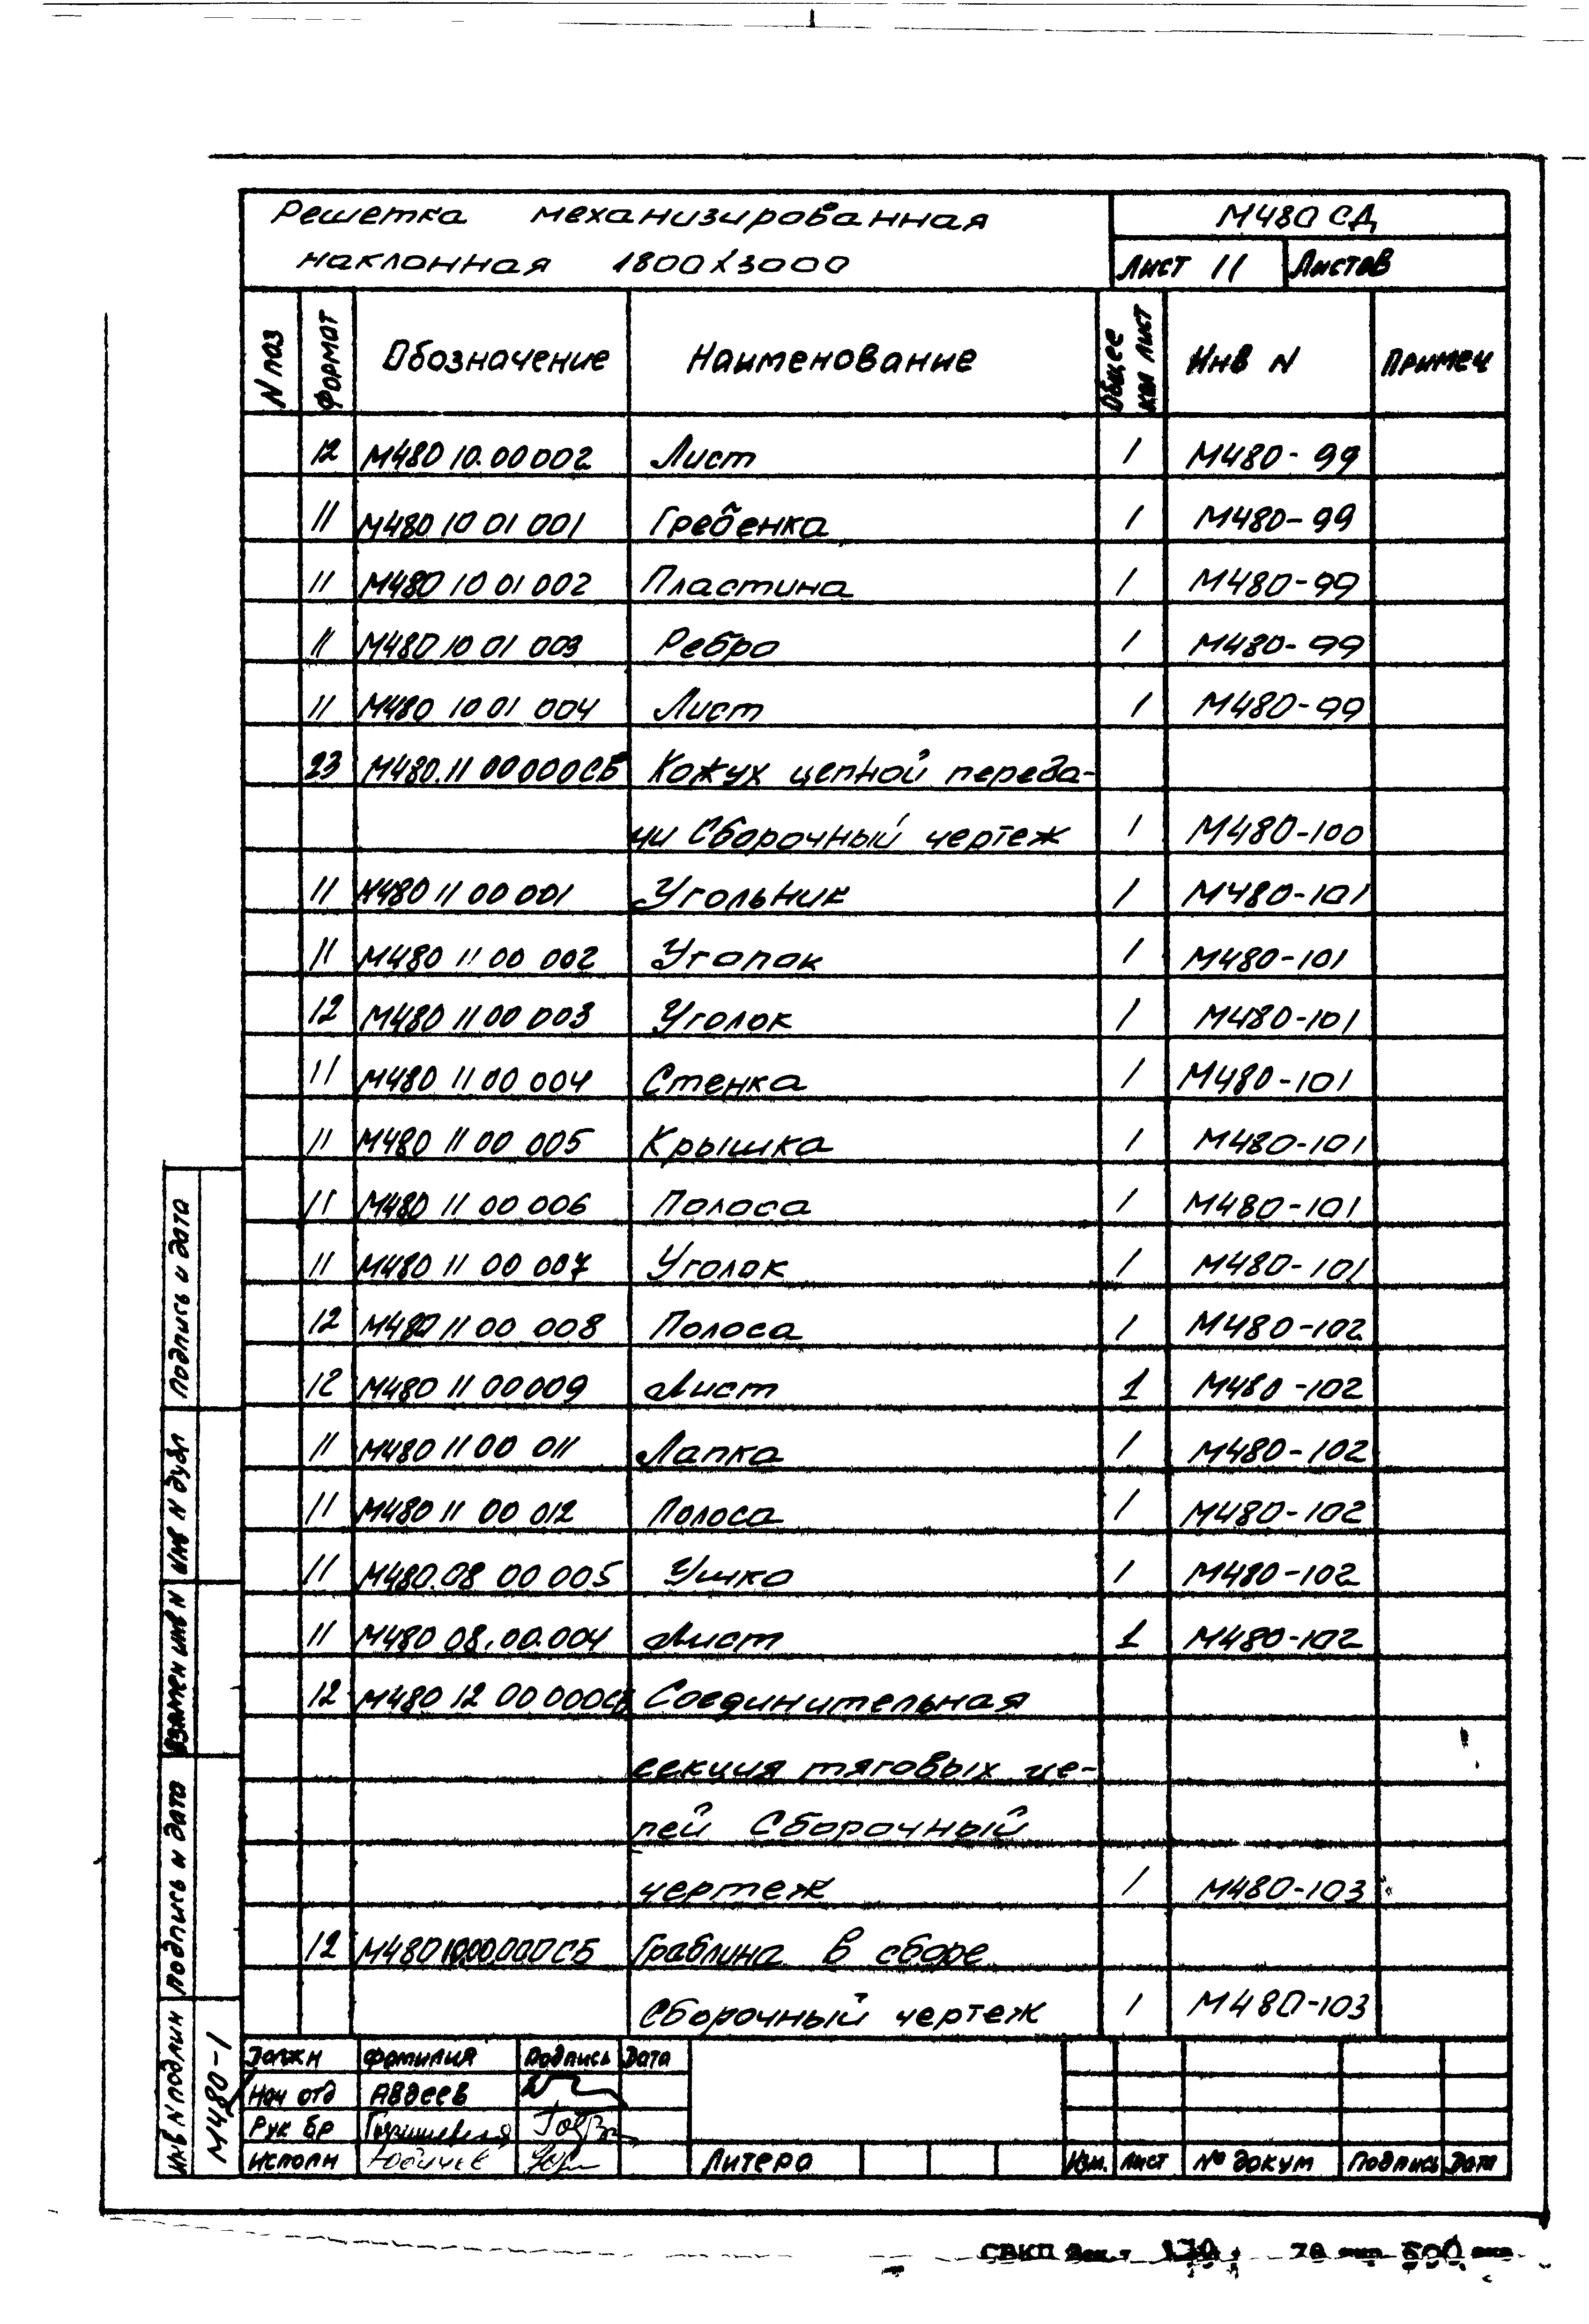 Решетка механизированная М480 СД
наклонная 1800х3000 Лист 11 Листов
N поз Формат Обозначение Наименование Общее кол лист Инв N Примеч
12 М480 10.00 002 Лист 1 М480-99
11 М480 10 01 001 Гребенка 1 М480-99
11 М480 10 01 002 Пластина 1 М480-99
11 М480 10 01 003 Ребро 1 М480-99
11 М480 10 01 004 Лист 1 М480-99
23 М480.11 00 000СБ Кожух цепной переда-
чи Сборочный чертеж 1 М480-100
11 М480 11 00 001 Угольник 1 М480-101
11 М480 11 00 002 Уголок 1 М480-101
12 М480 11 00 003 Уголок 1 М480-101
11 М480 11 00 004 Стенка 1 М480-101
11 М480 11 00 005 Крышка 1 М480-101
11 М480 11 00 006 Полоса 1 М480-101
11 М480 11 00 007 Уголок 1 М480-101
12 М480 11 00 008 Полоса 1 М480-102
12 М480 11 00 009 Лист 1 М480-102
11 М480 11 00 011 Лапка 1 М480-102
11 М480 11 00 012 Полоса 1 М480-102
11 М480.08 00 005 Ушко 1 М480-102
11 М480 08.00.004 Лист 1 М480-102
12 М480 12 00 000СБ Соединительная
секция тяговых це-
пей Сборочный
чертеж 1 М480-103
12 М480 10.00.000СБ Граблина в сборе
Сборочный чертеж 1 М480-103
Должн Фамилия Подпись Дата
Нач отд Авдеев
Рук бр
Исполн Литера Изм. Лист № докум Подпись Дата
Подпись и дата
Инв N дубл
Взамен инв N
Подпись и дата
Инв N подлин М480-1
СВКП Зак. 600